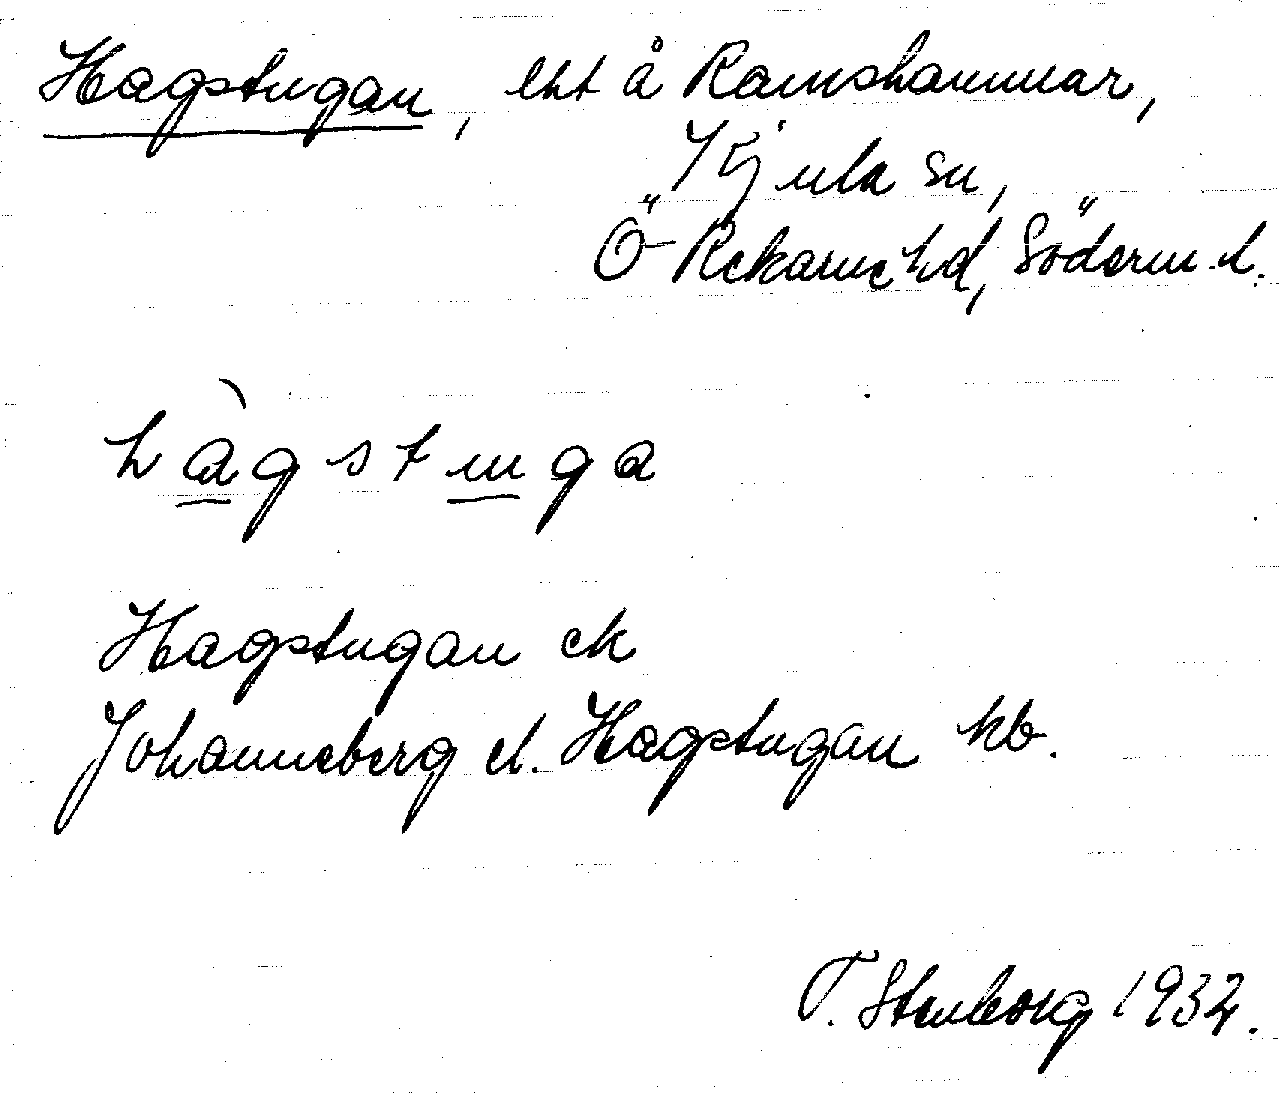 Hagstugan, lht å Ramshammar,
Kjula sn,
Ö Rekarne hd, Söderm. l.
hàgstuga
Hagstugan ek
Johanneberg el. Hagstugan kb.
T. Stenborg 1932.